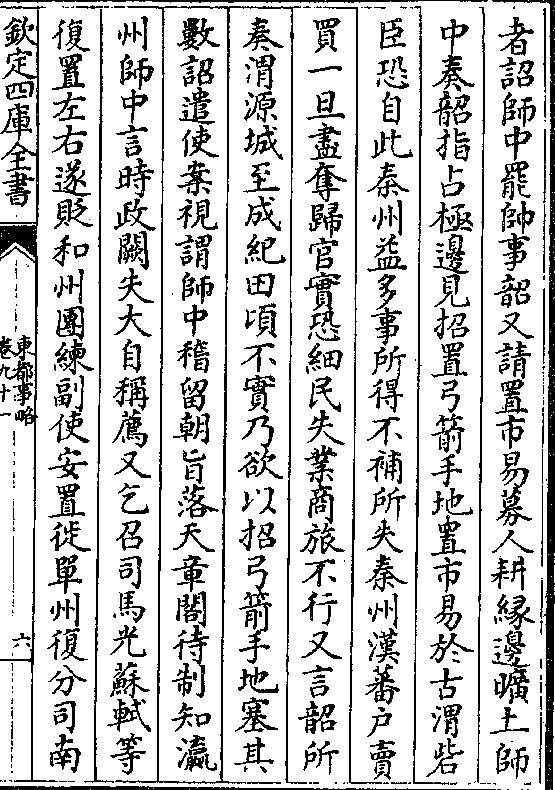 者詔師中罷帥事韶又請置市易募人耕緣邊曠土師
中奏韶指占極邊見招置弓箭手地置市易於古渭砦
臣恐自此秦州益多事所得不補所失秦州漢蕃户賣
買一旦盡奪歸官實恐細民失業商旅不行又言韶所
奏渭源城至成紀田頃不實乃欲以招弓箭手地塞其
數詔遣使案視謂師中稽留朝旨落天章閣待制知瀛
州師中言時政闕失大自稱薦又乞召司馬光蘇軾等
復置左右遂貶和州團練副使安置徙單州復分司南
欽定四庫全書
東都事略
卷九十一
六